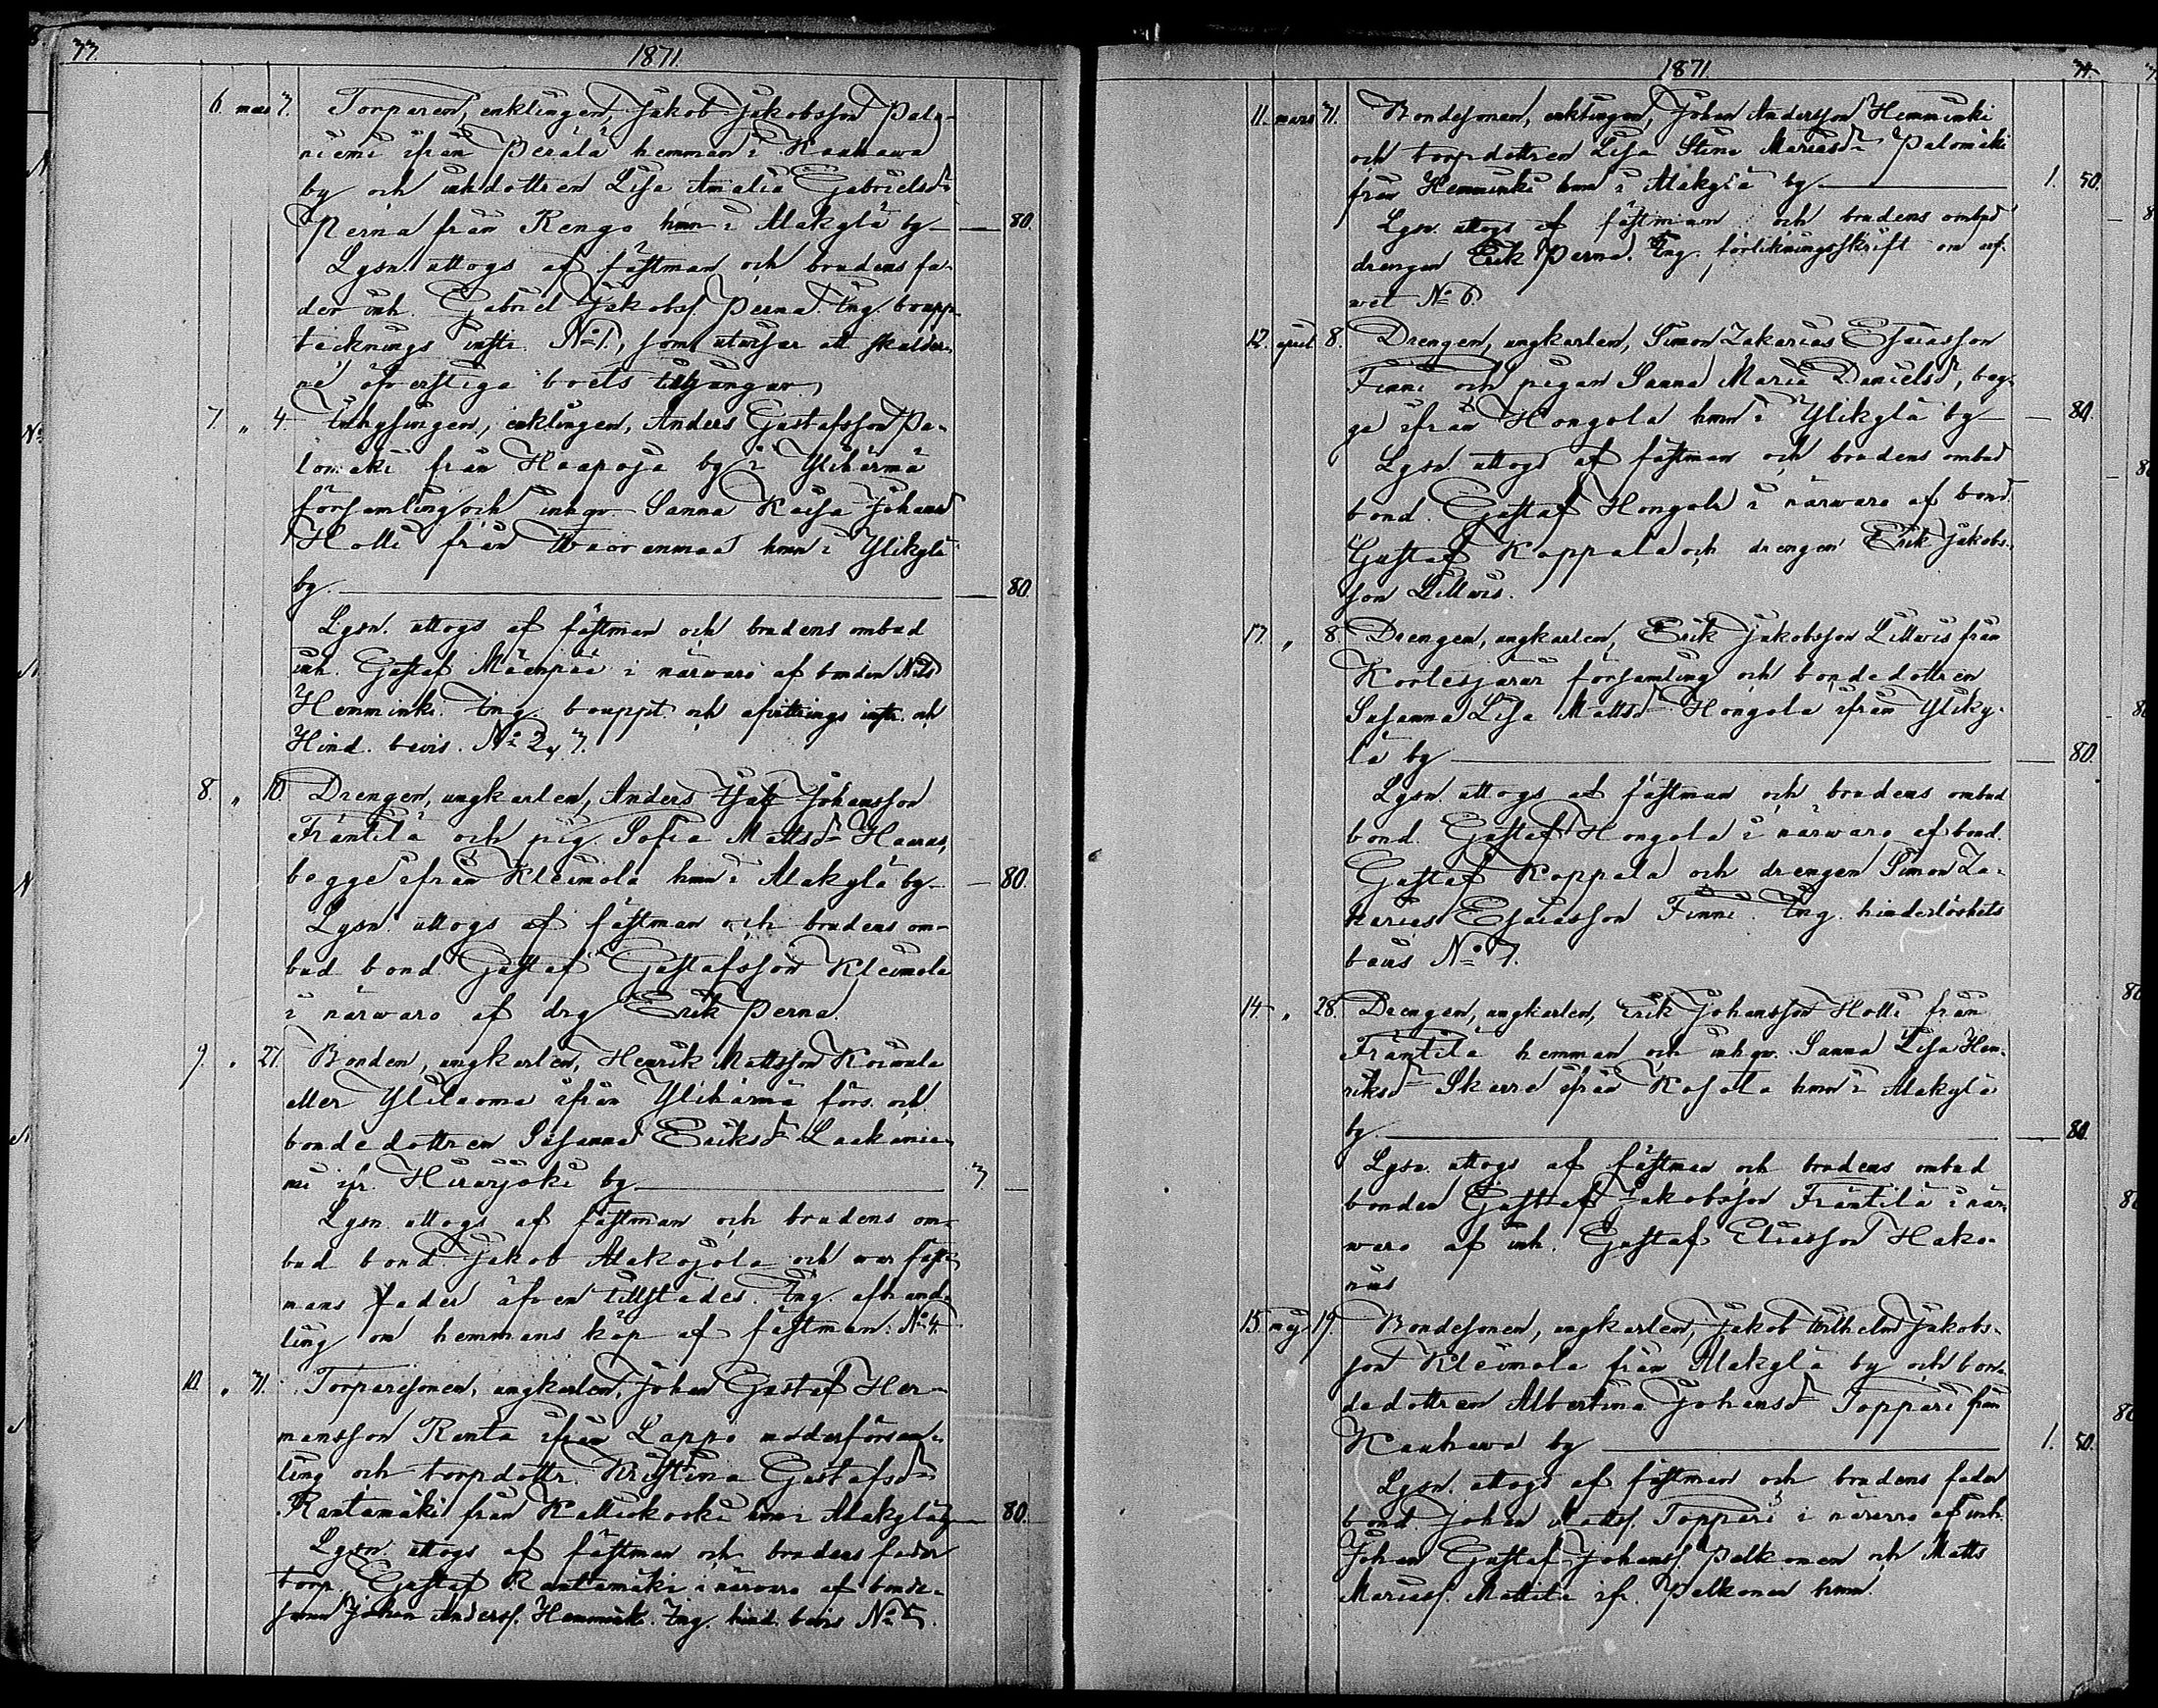 33.
1871.
6. mars 3. Torparen, enklingen, Jakob Jakobsson Palo-
niemi ifrån Perälä hemman i Kauhawa
by och inhdottren Lisa Amalia Gabrielsdr
Perna från Rengo hmn i Alakylä by — 80.
Lysn. uttogs af fästman och brudens fa-
der inh. Gabriel Jakobss. Perna. Ing. boupp-
tecknings instr. No 1, som utwisar att skulder-
na öfwerstiga boets tillgångar,
7. „ 4. Inhysingen, enklingen, Anders Gustafsson Pa-
lomäki från Haapoja by i Ylihärmä
församling och inhqv. Sanna Kaisa Johansd
Holli från Waoranmaa hmn i Ylikylä
by. — 80.
Lysn. uttogs af fästman och brudens ombud
inh. Gustaf Mäenpää i närwaro af bonden Nils
Hemminki. Ing. bouppt. och afwittrings instr. och
Hind. bevis. No 2, 3.
8. „ 10. Drengen, ungkarlen, Anders Johansson
Fräntilä och pig. Sofia Mattsdr Haaras,
begge ifrån Kleimola hmn i Alakylä by — 80.
Lysn. uttogs af fästman och brudens om-
bud bond. Gustaf Gustafsson Kleimola
i närwaro af drg Erik Perna.
9. „ 27. Bonden, ungkarlen, Henrik Mattsson Koiwula
eller Ylilaoma ifrån Ylihärmä förs. och
bondedottren Susanna Eriksdr Laakanie-
mi ifr. Hirwijoki by — 3 —
Lysn. uttogs af fästman och brudens om-
bud bond. Jakob Alakojola och war fäst-
mans fader äfven tillstädes. Ing. afhand-
ling om hemmans köp af fästman: No 4.
10. „ 31. Torparesonen, ungkarlen, Johan Gustaf Her-
mansson Renta ifrån Lappo moderförsam-
ling och torpdottr. Kristina Gustafsdr
Rantamäki från Kalliokoski hmn i Alakylä by — 80.
Lysn. uttogs af fästman och brudens fader
torp. Gustaf Rantamäki i närwaro af bonde-
sonen Johan Anderss. Hemminki. Ing. hind. bevis No 5.
1871.
11. mars 31. Bondesonen, enklingen, Johan Andersson Hemminki
och torpdottren Lisa Stina Mariasdr Palomäki
från Hemminki hmn i Alakylä by — 1. 50.
Lysn. uttogs af fästman och brudens ombud
drengen Erik Perna. Ing. förlikningsskrift om arf-
wet No 6.
12. april 8. Drengen, ungkarlen, Simon Zakarias Esaiasson
Finni och pigan Sanna Maria Danielsdr, beg-
ge ifrån Hongola hmn i Ylikylä by — 80.
Lysn. uttogs af fästman och brudens ombud
bond. Gustaf Hongola i närwaro af bond.
Gustaf Koppala och drengen Erik Jakobs-
son Lillwis.
13. „ 8. Drengen, ungkarlen, Erik Jakobsson Lillwis från
Kortesjärwi församling och bondedottren
Susanna Lisa Mattsdr Hongola ifrån Yliky-
lä by — 80.
Lysn. uttogs af fästman och brudens ombud
bond. Gustaf Hongola i närwaro af bond.
Gustaf Koppala och drengen Simon Za-
karias Esaiasson Finni. Ing. hinderlöshets
bevis No 7.
14. „ 28. Drengen, ungkarlen, Erik Johansson Holli från
Fräntilä hemman och inhqv. Sanna Lisa Hen-
riksdr Skarra ifrån Kosola hmn i Alakylä
by. — 80.
Lysn. uttogs af fästman och brudens ombud
bonden Gustaf Jakobsson Fräntilä i när-
waro af inh. Gustaf Eliasson Hako-
nus
15. maj 19. Bondesonen, ungkarlen, Jakob Wilhelm Jakobs-
son Kleimola från Alakylä by och bon-
dedottren Albertina Johansdr Toppari från
Kauhawa by — 1. 50.
Lysn. uttogs af fästman och brudens fader
bond. Johan Mattss. Toppari i närwaro af inh.
Johan Gustaf Johanss. Pelkonen och Matts
Mariass. Mattila ifr. Pelkonen hmn.